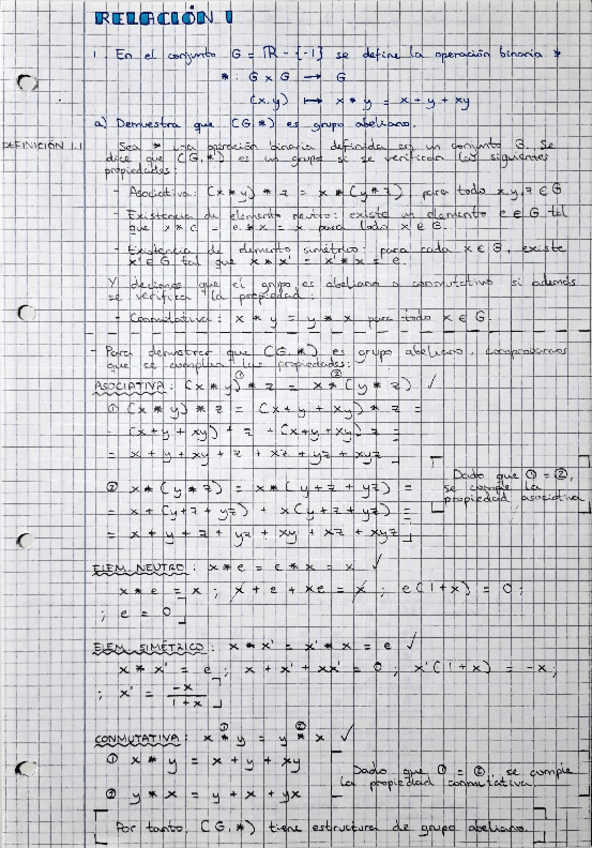 RELACIÓN 1
1 En el conjunto G = ℝ - {-1} se define la operación binaria *
* : G × G → G
(x,y) ↦ x * y = x + y + xy
a) Demuestra que (G,*) es grupo abeliano.
DEFINICIÓN 1.1 Sea * una operación binaria definida en un conjunto G. Se
dice que (G,*) es un grupo si se verifican las siguientes
propiedades:
- Asociativa: (x * y) * z = x * (y * z), para todo x,y,z ∈ G
- Existencia de elemento neutro: existe un elemento e ∈ G tal
que x * e = e * x = x para todo x ∈ G.
- Existencia de elemento simétrico: para cada x ∈ G, existe
x' ∈ G tal que x * x' = x' * x = e.
Y decimos que el grupo es abeliano o conmutativo si además
se verifica la propiedad:
- Conmutativa: x * y = y * x para todo x ∈ G.
- Para demostrar que (G,*) es grupo abeliano, comprobamos
que se cumplan las propiedades:
ASOCIATIVA: (x * y) ① * z = x * ② (y * z) ✓
① (x * y) * z = (x + y + xy) * z =
= (x + y + xy) + z + (x + y + xy) z =
= x + y + xy + z + xz + yz + xyz
② x * (y * z) = x * (y + z + yz) =
= x + (y + z + yz) + x(y + z + yz) =
= x + y + z + yz + xy + xz + xyz
Dado que ① = ②,
se cumple la
propiedad asociativa
ELEM. NEUTRO: x * e = e * x = x ✓
x * e = x ; x + e + xe = x ; e(1+x) = 0 ;
; e = 0
ELEM. SIMÉTRICO: x * x' = x' * x = e ✓
x * x' = e ; x + x' + xx' = 0 ; x'(1+x) = -x ;
; x' = -x / 1+x
CONMUTATIVA: x * ① y = y * ② x ✓
① x * y = x + y + xy
② y * x = y + x + yx
Dado que ① = ②, se cumple
la propiedad conmutativa.
Por tanto, (G,*) tiene estructura de grupo abeliano.